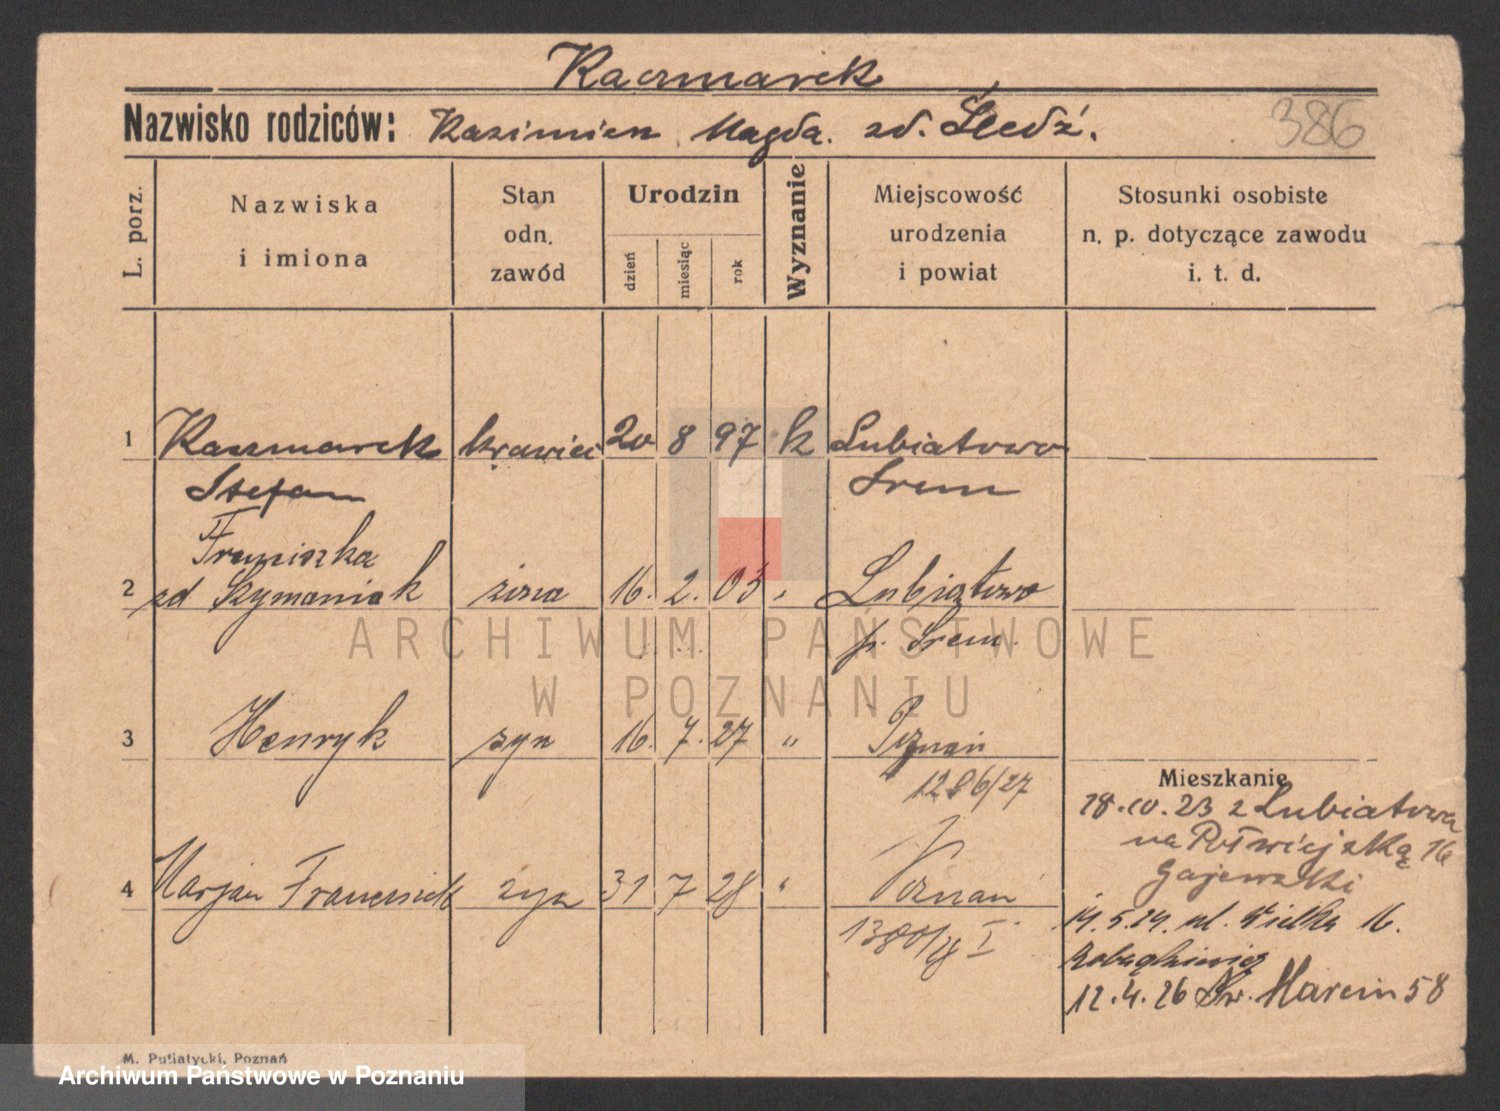 Kaczmarek
Nazwisko rodziców: Kazimierz Magda. zd. Śledź.
386
L. porz.
Nazwiska
i imiona
Stan
odn.
zawód
Urodzin
dzień
miesiąc
rok
Wyznanie
Miejscowość
urodzenia
i powiat
Stosunki osobiste
n. p. dotyczące zawodu
i. t. d.
1 Kaczmarek krawiec 20 8 97 k Lubiatowo
Stefan Śrem
Franciszka
2 zd Szymaniak żona 16. 2. 03 „ Lubiatowo
p. Śrem.
3 Henryk syn 16. 7. 27 „ Poznań
1286/27
Mieszkanie
18.10.23 z Lubiatowa
na Półwiejską 16
Gajewski
4 Marjan Franciszek syn 31 7 28 „ Poznań
1380/28 I
14.5.24 ul. Wielka 16.
12.4.26 Św. Marcin 58
M. Putiatycki, Poznań
ARCHIWUM PAŃSTWOWE
W POZNANIU
Archiwum Państwowe w Poznaniu